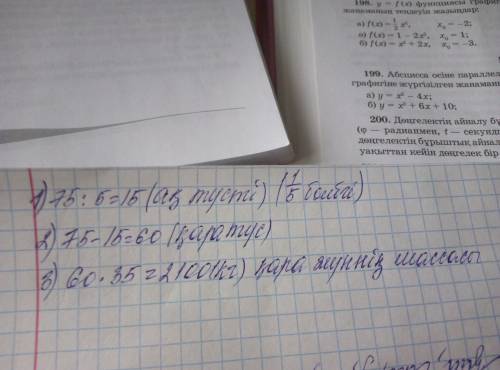 198. y = f(x) функциясы графи
жанаманың теңдеуін жазыңдар:
а) f(x) = 1/3 x³, x₀ = −2;
ә) f(x) = 1 − 2x², x₀ = 1;
б) f(x) = x² + 2x, x₀ = −3.
199. Абсцисса осіне параллел
графигіне жүргізілген жанаман
а) y = x² − 4x;
б) y = x² + 6x + 10;
200. Дөңгелектің айналу бұ
(φ — радианмен, t — секунд
дөңгелектің бұрыштық айнал
уақыттан кейін дөңгелек бір
1) 75 : 5 = 15 (ақ түсті) (1/5 бөлігі)
2) 75 − 15 = 60 (қара түс)
3) 60 · 35 = 2100 (кг) қара жүннің массасы